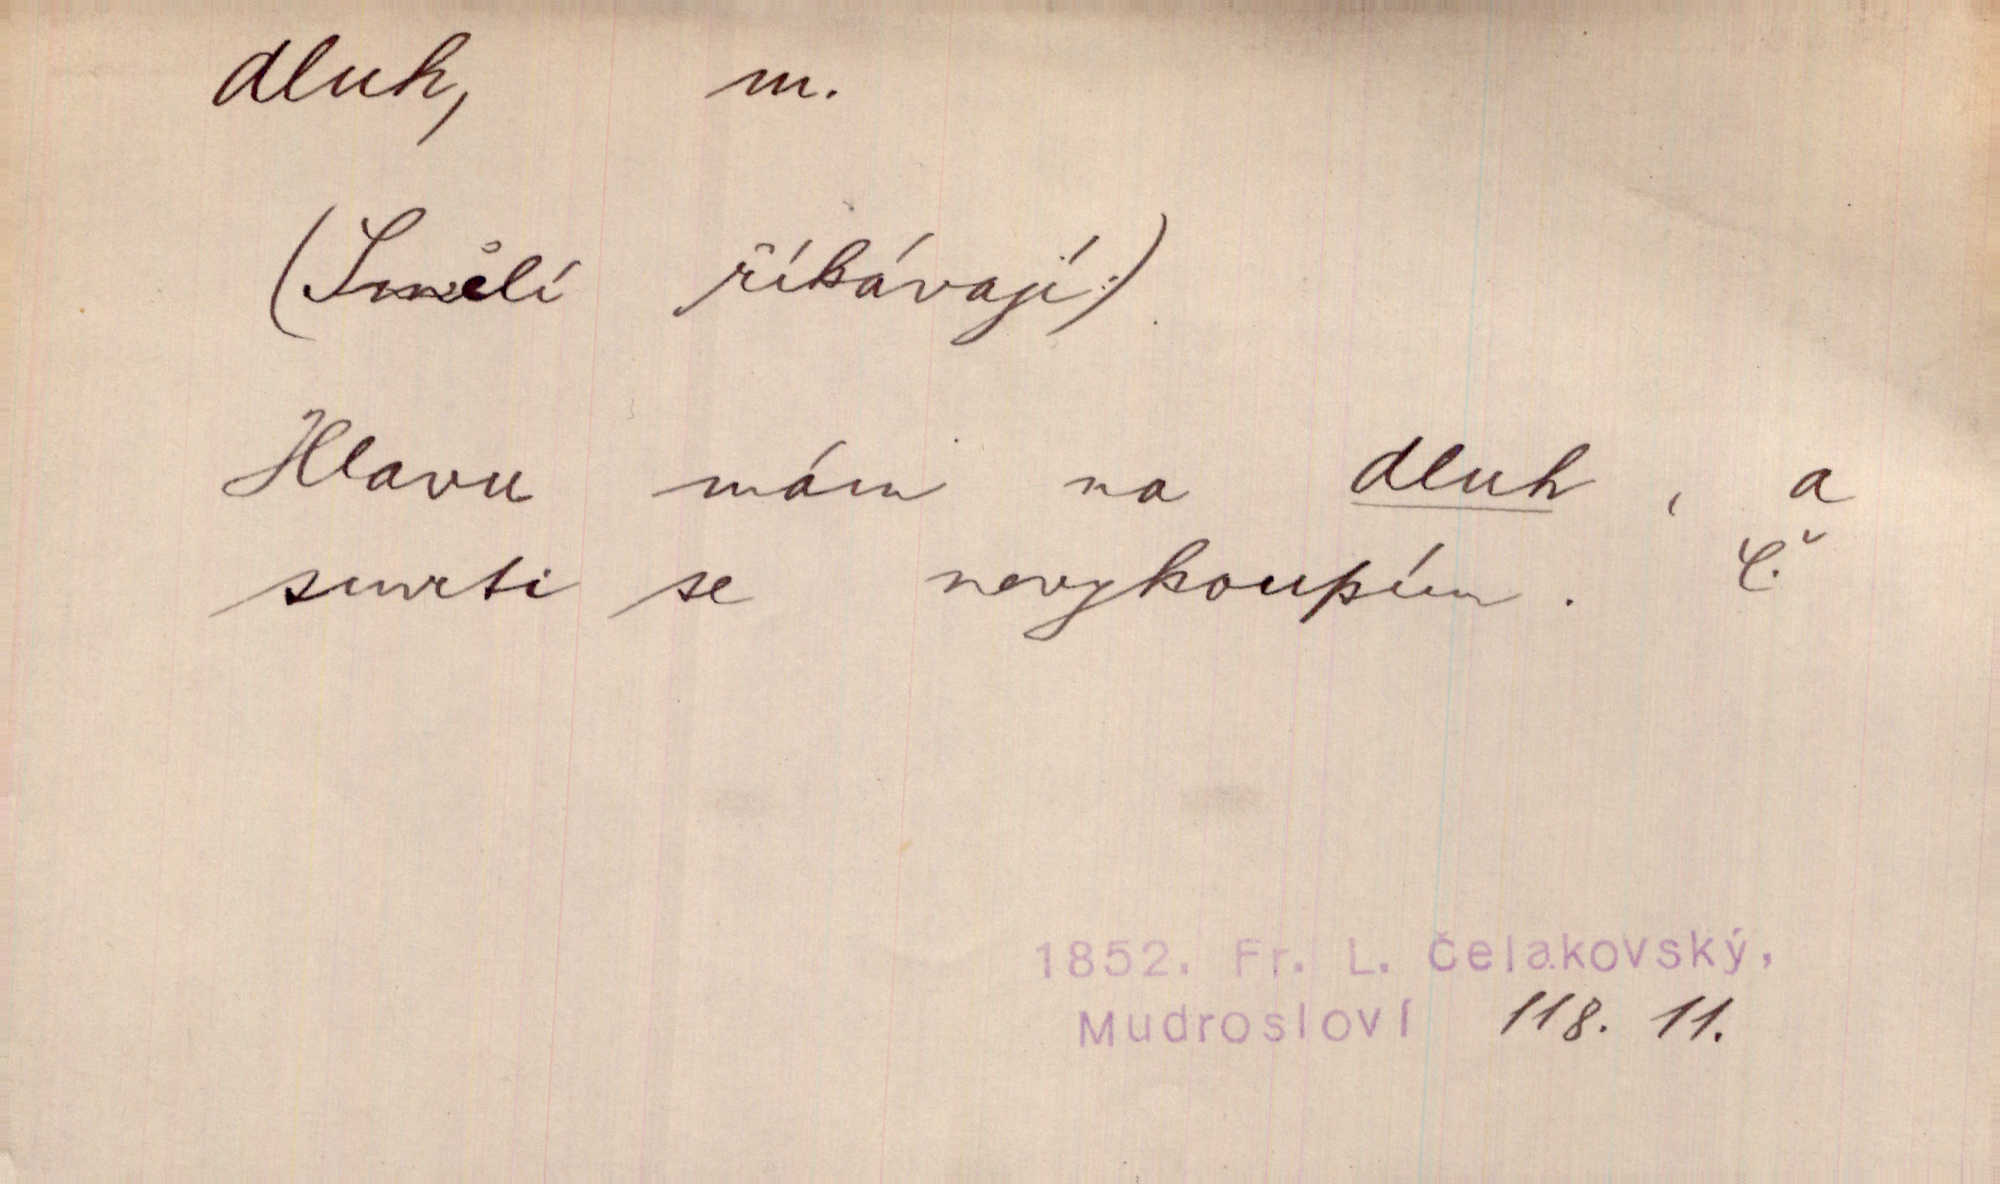 dluh, m.
(Smělí říkávají:)
Hlavu mám na dluh, a
smrti se nevykoupím. Č.
1852. Fr. L. Čelakovský,
Mudrosloví 118. 11.